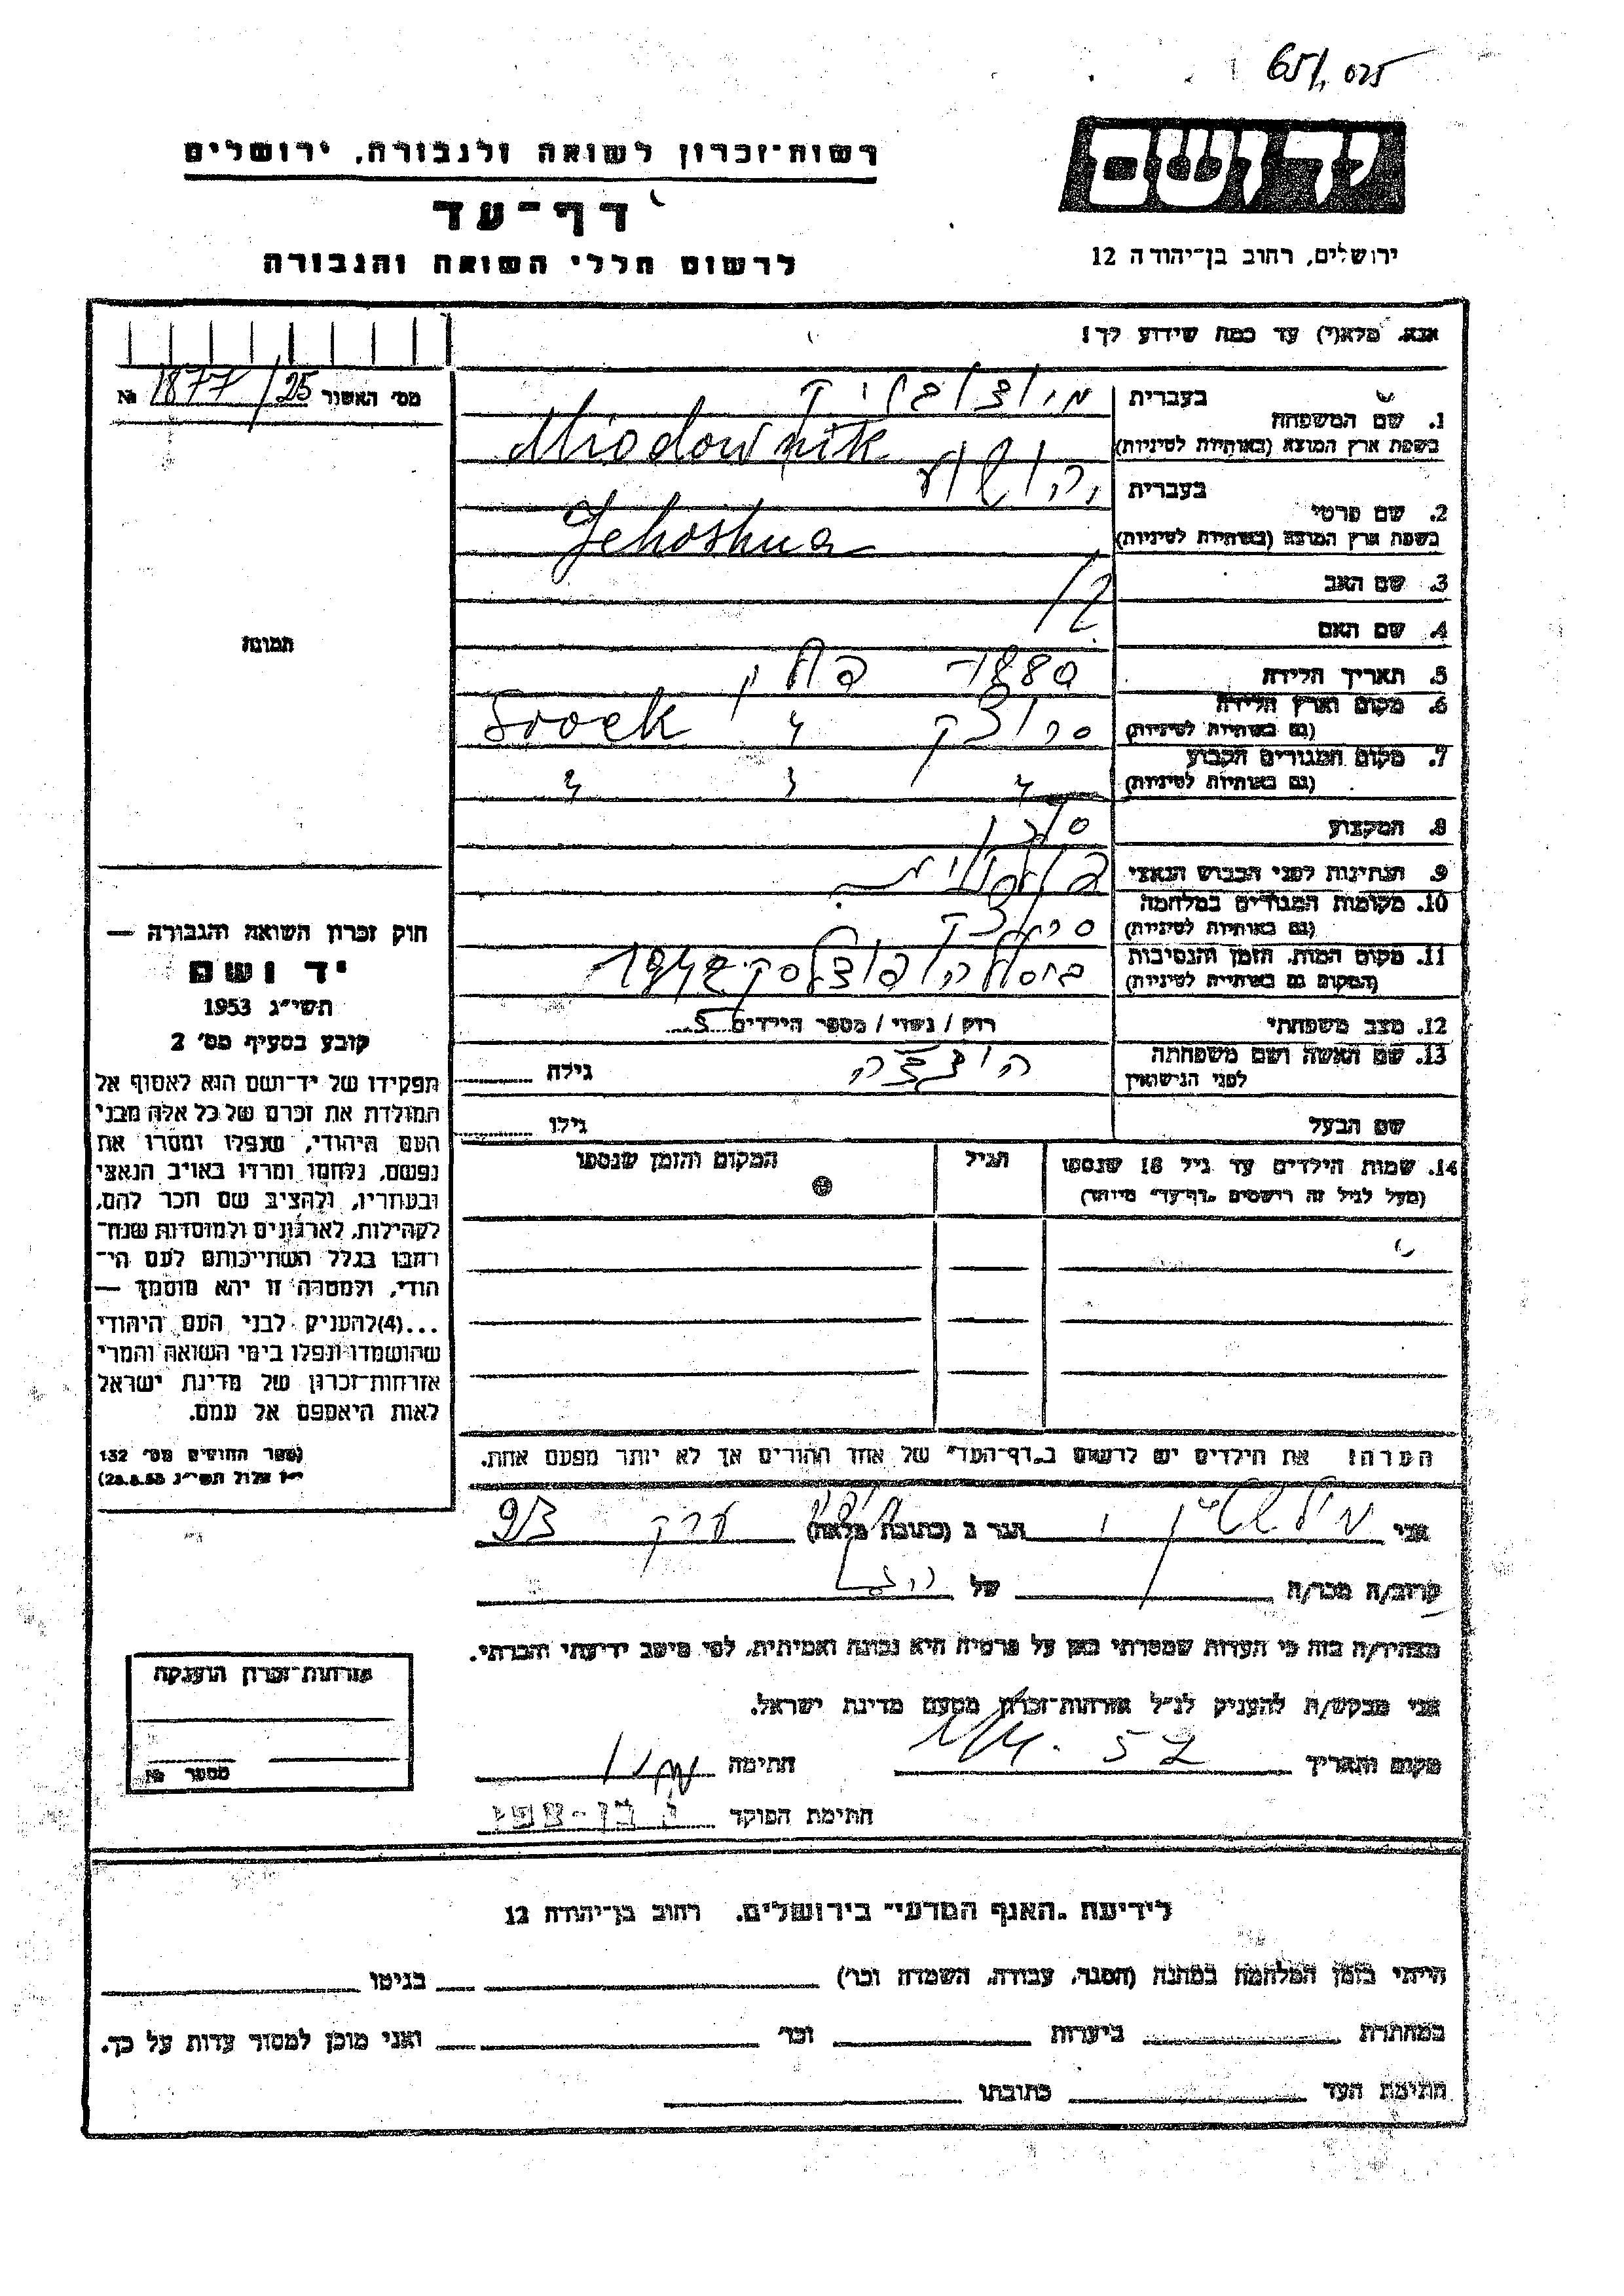 65/, 025
יד ושם
ירושלים, רחוב בן־יהודה 12
רשות־זכרון לשואה ולגבורה, ירושלים
דף־עד
לרשום חללי השואה והגבורה
אנא, מלא(י) עד כמה שידוע לך!
מס׳ האשור 1877/25 №
1. שם המשפחה
בעברית
Miodownik
בשפת ארץ המוצא (באותיות לטיניות)
2. שם פרטי
בעברית יהושע
Jehoshua
בשפת ארץ המוצא (באותיות לטיניות)
3. שם האב
4. שם האם
5. תאריך הלידה
6. מקום וארץ הלידה
(גם באותיות לטיניות)
סרוצק Srock
7. מקום המגורים הקבוע
(גם באותיות לטיניות)
8. המקצוע
9. הנתינות לפני הכבוש הנאצי
10. מקומות המגורים במלחמה
(גם באותיות לטיניות)
סרוצק
11. מקום המות, הזמן והנסיבות
(המקום גם באותיות לטיניות)
12. מצב משפחתי
רווק / נשוי / מספר הילדים 5
13. שם האשה ושם משפחתה
לפני הנישואין
גילה
שם הבעל
גילו
14. שמות הילדים עד גיל 18 שנספו
(מעל לגיל זה רושמים „דף־עד״ מיוחד)
הגיל
המקום והזמן שנספו
הערה! את הילדים יש לרשום ב„דף־העד״ של אחד ההורים אך לא יותר מפעם אחת.
תמונה
חוק זכרון השואה והגבורה —
יד ושם
תשי״ג 1953
קובע בסעיף מס׳ 2
תפקידו של יד־ושם הוא לאסוף אל
המולדת את זכרם של כל אלה מבני
העם היהודי, שנפלו ומסרו את
נפשם, נלחמו ומרדו באויב הנאצי
ובעוזריו, ולהציב שם וזכר להם,
לקהילות, לארגונים ולמוסדות שנח־
רבו בגלל השתייכותם לעם הי־
הודי, ולמטרה זו יהא מוסמך —
...(4)להעניק לבני העם היהודי
שהושמדו ונפלו בימי השואה והמרי
אזרחות־זכרון של מדינת ישראל
לאות היאספם אל עמם.
(ספר החוקים מס׳ 132
י״ז אלול תשי״ג 28.8.53)
אני
הגר ב (כתובת מלאה)
קרוב/ה מכר/ה
של
מצהיר/ה בזה כי העדות שמסרתי כאן על פרטיה היא נכונה ואמיתית, לפי מיטב ידיעתי והכרתי.
אני מבקש/ת להעניק לנ״ל אזרחות־זכרון מטעם מדינת ישראל.
מקום ותאריך
חתימה
חתימת הפוקד
אזרחות־זכרון הוענקה
מספר №
לידיעת „האגף המדעי״ בירושלים, רחוב בן־יהודה 12
הייתי בזמן המלחמה במחנה (הסגר, עבודה, השמדה וכו׳) בגיטו
במחתרת ביערות וכו׳ ואני מוכן למסור עדות על כך.
חתימת העד כתובתו